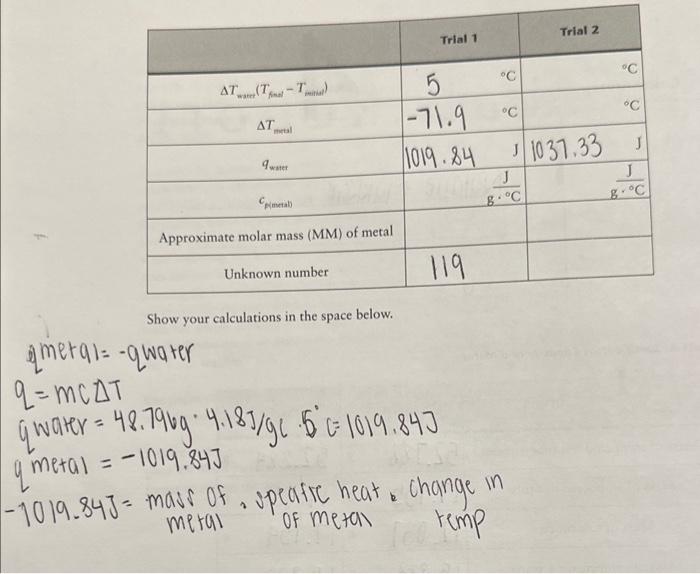 Trial 1 Trial 2
ΔT water (T final − T initial) 5 °C °C
ΔT metal -71.9 °C °C
q water 1019.84 J 1037.33 J
c p(metal) J/g·°C J/g·°C
Approximate molar mass (MM) of metal
Unknown number 119
Show your calculations in the space below.
qmetal = -qwater
q = mCΔT
qwater = 48.796g · 4.18J/gC · 5°C = 1019.84J
qmetal = -1019.84J
-1019.84J = mass of metal · specific heat of metal · change in temp